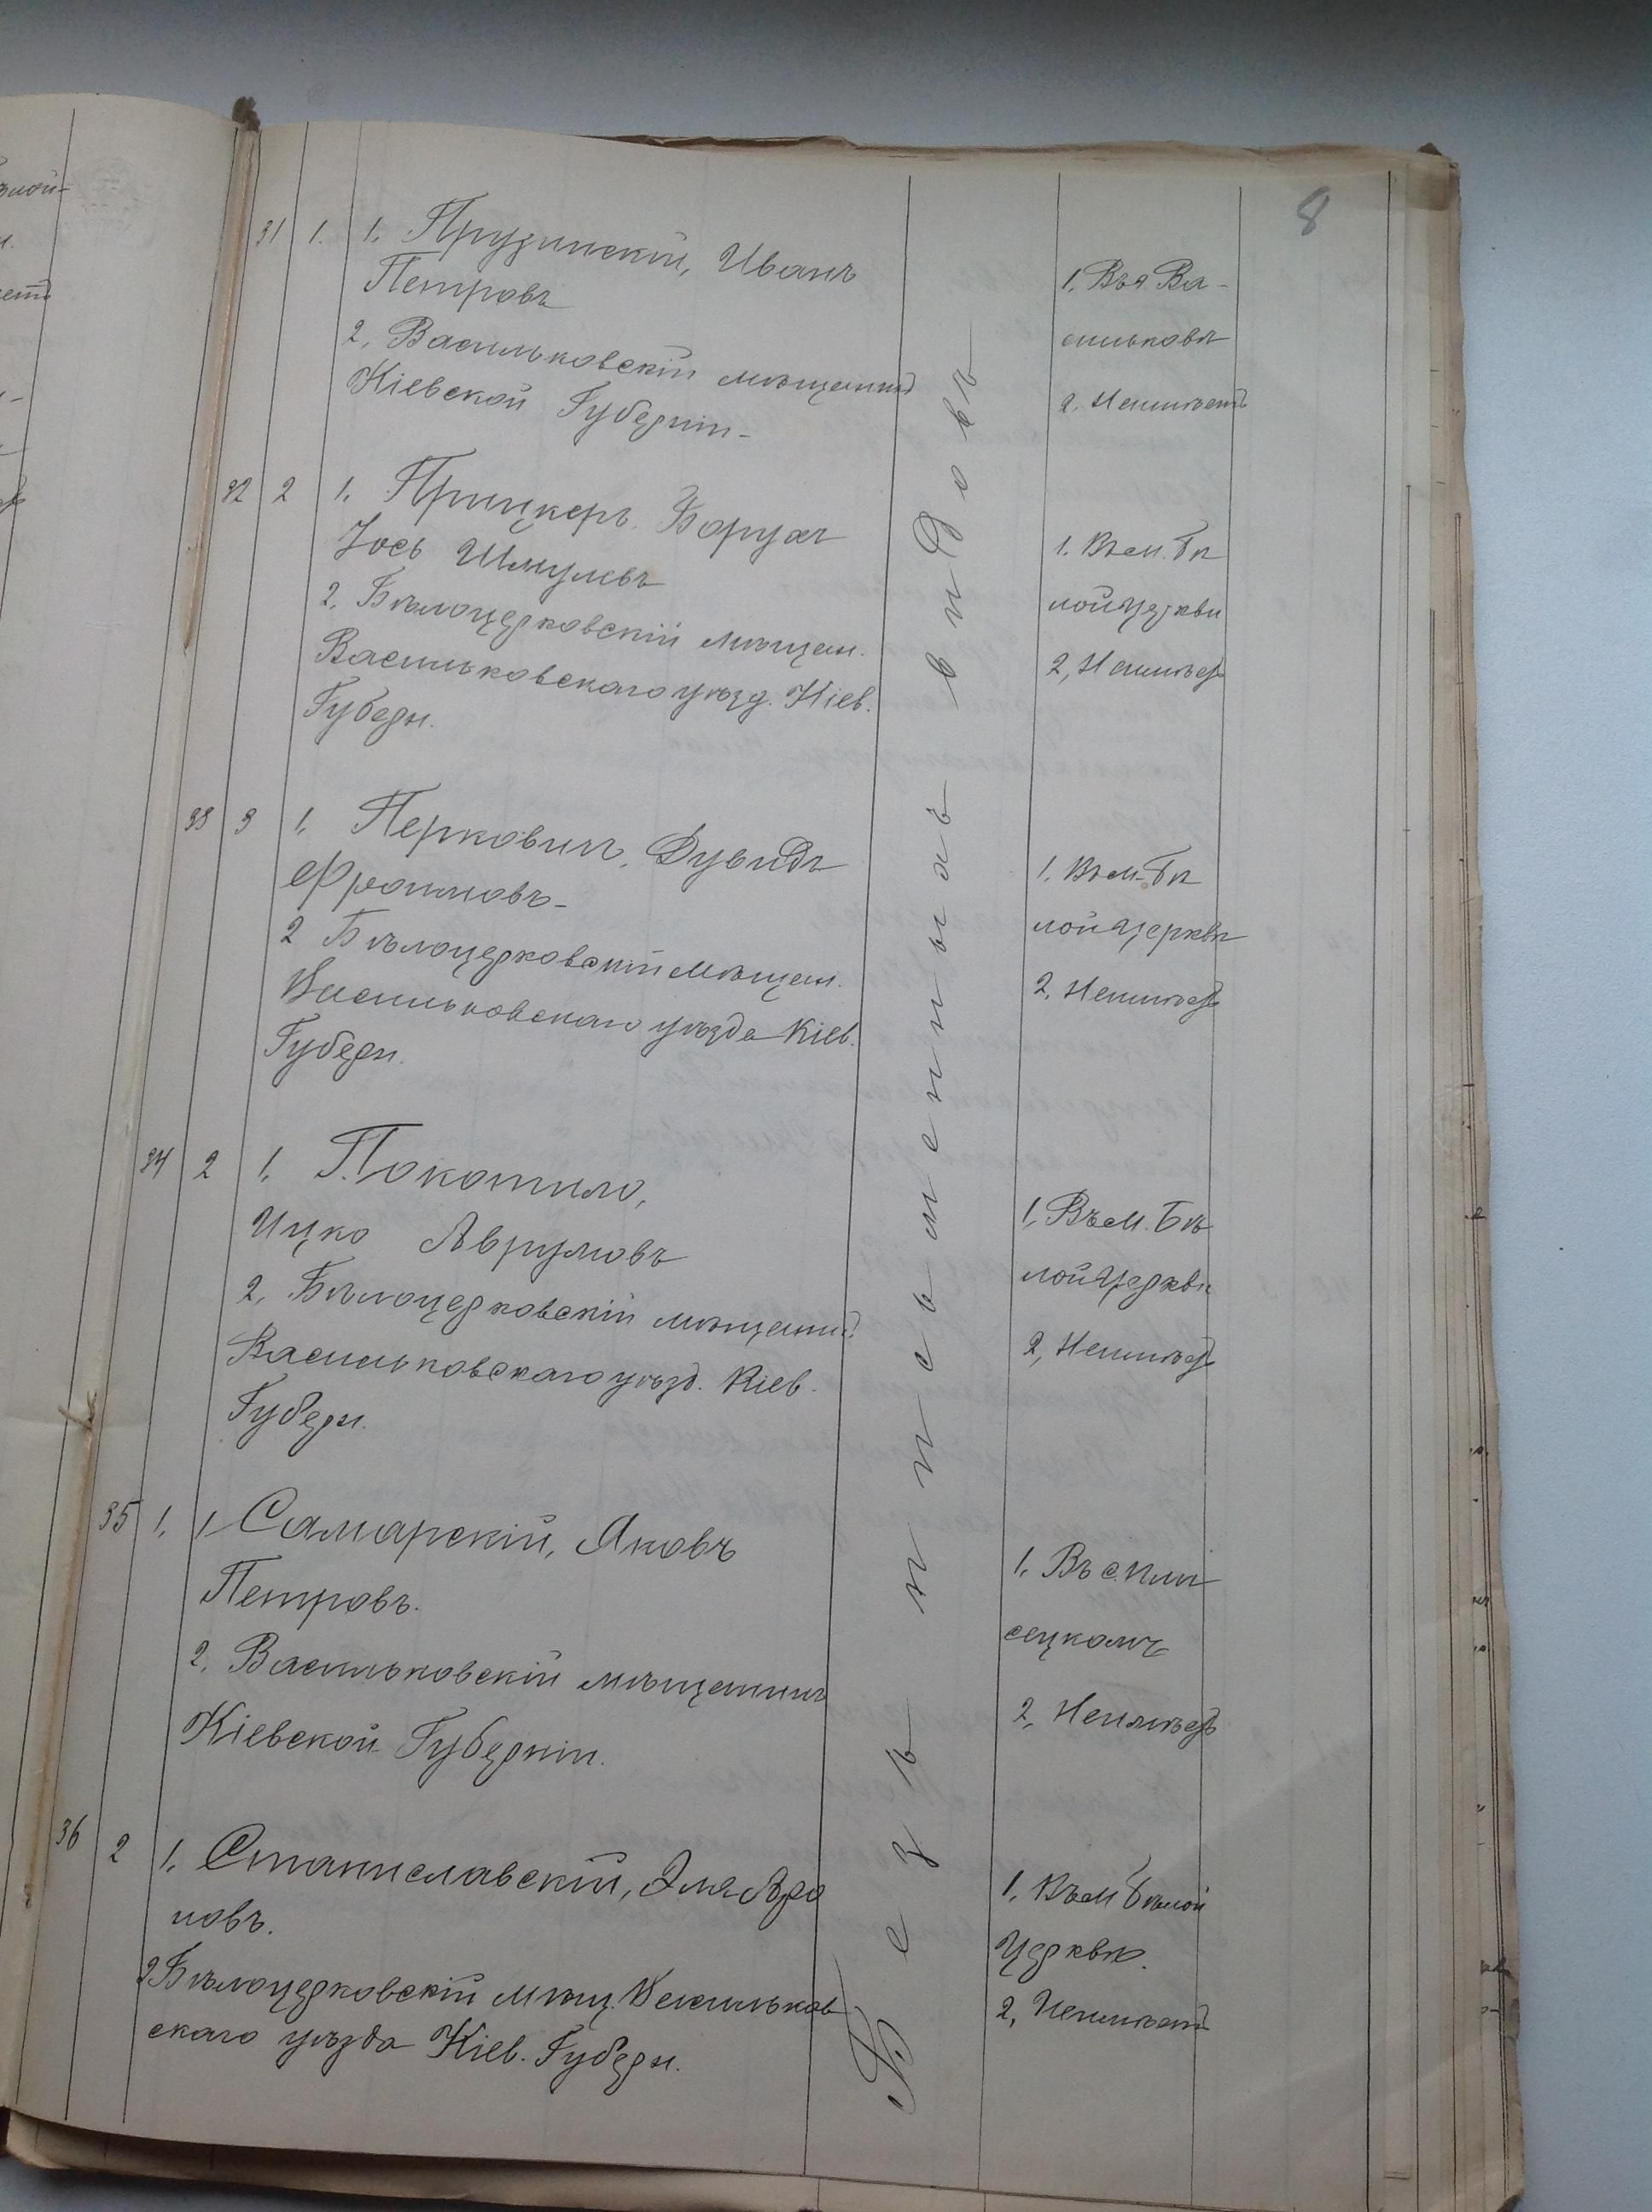 8
31 1. 1. Прузинскій, Иванъ
Петровъ
2, Васильковскій мѣщанинъ
Кіевской Губерніи-
1. Въ г Ва-
сильковѣ
2. Неимѣетъ
32 2 1. Прицкеръ. Борухъ
Іось Шмулевъ
2, Бѣлоцерковскій мѣщан.
Васильковскаго уѣзд. Кіев.
Губерн.
1. Въ м. Бѣ
лой Церкви
2, Неимѣетъ
33 3 1. Перковичъ, Дувидъ
Фроимовъ-
2 Бѣлоцерковскій Мѣщан.
Васильковскаго уѣзда Кіев.
Губерн.
1. Въ м. Бѣ
лой Церквѣ
2, Неимѣетъ
34 2 1. Покотило,
Ицко Аврумовъ
2, Бѣлоцерковскій мѣщанин.
Васильковскаго уѣзд. Кіев.
Губерн.
1, Въ м. Бѣ
лой Церквѣ
2, Неимѣетъ
35 1. 1, Самарскій, Яковъ
Петровъ.
2. Васильковскій мѣщанинъ
Кіевской Губерніи.
1. Въ с. Пли
сецкомъ
2, Неимѣетъ
36 2 1. Станиславскій, Эля Аро
новъ.
2 Бѣлоцерковскій мѣщ. Васильков
скаго уѣзда Кіев. Губерн.
1. Въ м Бѣлой
Церквѣ.
2, Неимѣетъ
Безъ письменныхъ видовъ